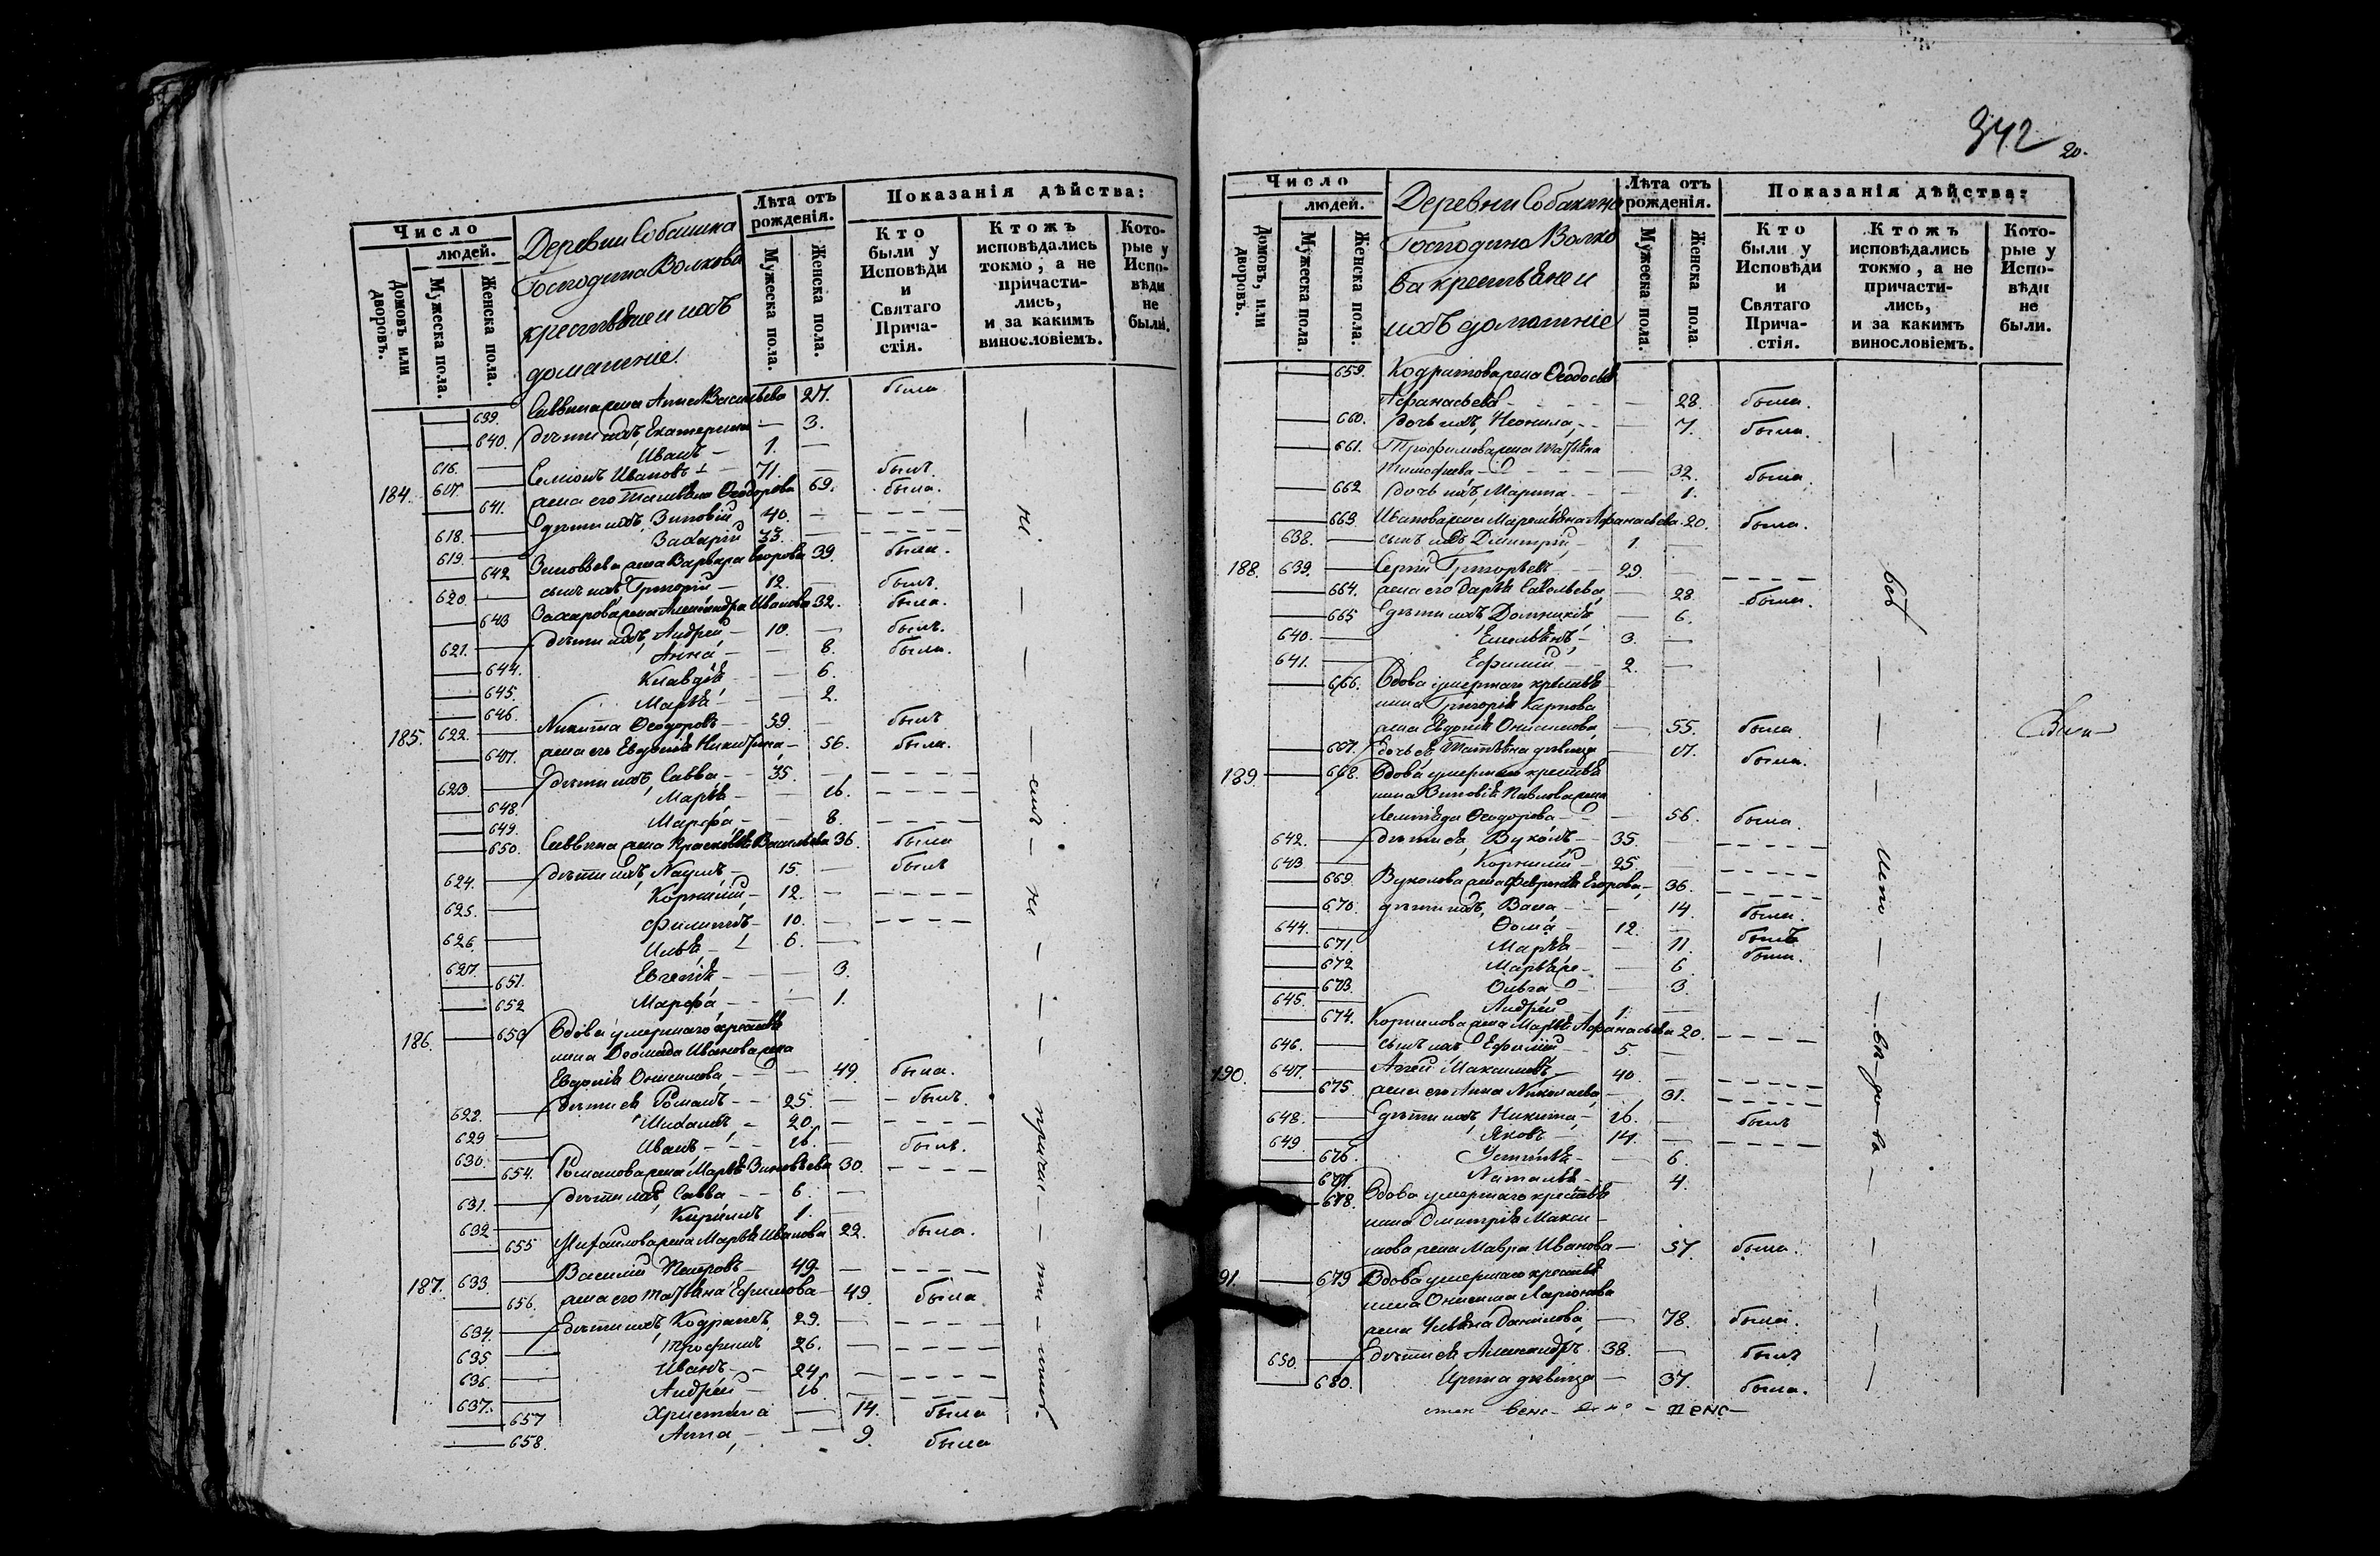 Число
людей.
Домовъ или дворовъ.
Мужеска пола.
Женска пола.
Деревни Собакина
Господина Волкова
крестьяне и ихъ
домашніе.
Лѣта отъ рожденія.
Мужеска пола.
Женска пола.
Показанія дѣйства:
Кто были у Исповѣди и Святаго Причастія.
Ктожъ исповѣдались токмо, а не причастились, и за какимъ винословіемъ.
Которые у Исповѣди не были.
639. Саввина жена Анна Васильева 27. была
640. дѣти ихъ, Екатерина — 3.
616. Иванъ — 1.
184. 617. Семіонъ Ивановъ — 71. былъ
641. жена его Татьяна Ѳеодорова 69. была.
618. дѣти ихъ, Зиновій 40.
619. Захарій 33.
642 Зиновьева жена Варвара Егорова 39. была.
620 сынъ ихъ Григорій — 12. былъ
643 Захарова жена Александра Иванова 32. была.
621. дѣти ихъ, Андрей — 10. былъ.
644. Анна — 8. была.
645. Клавдія — 6.
646. Марья — 2.
185. 622. Никита Ѳеодоровъ — 59. былъ
647. жена его Евдокія Никитина — 56. была.
623. дѣти ихъ, Савва — 35.
648. Марья — 16.
649. Марфа — 8.
650. Саввина жена Прасковья Васильева 36. была
624. дѣти ихъ, Наумъ — 15. былъ
625. Корнилій — 12.
626 Филиппъ — 10.
627. Илья — 6.
651. Евгенія — 3.
652 Марфа — 1.
186. 653 Вдова умершаго крестья
нина Діомида Иванова жена
Евдокія Онисимова — 49. была.
622. дѣти ея Романъ — 25. былъ.
629 Михаилъ — 20.
630. Иванъ — 16. былъ.
654. Романова жена Марья Зиновьева 30.
631. дѣти ихъ, Савва — 6.
632 Кирилъ 1.
655 Михайлова жена Марья Иванова 22. была.
187. 633 Василій Петровъ — 49.
656. жена его Татьяна Ефимова — 49 была
634. дѣти ихъ, Кодратъ 29.
635 Трофимъ 26.
636. Иванъ — 24.
637. Андрей — 16
657 Христина — 14. была
658. Анна — 9. была
342 20.
Число
людей.
Домовъ, или дворовъ.
Мужеска пола.
Женска пола.
Деревни Собакина
Господина Волко
ва крестьяне и
ихъ домашніе
Лѣта отъ рожденія.
Мужеска пола.
Женска пола
Показанія дѣйства:
Кто были у Исповѣди и Святаго Причастія.
Ктожъ исповѣдались токмо, а не причастились, и за какимъ винословіемъ.
Которые у Исповѣди не были.
659. Кодратова жена Ѳеодосья
Афанасьева — 28. была.
660. дочь ихъ, Неонила — 7. была.
661. Трофимова жена Татьяна
Тимофеева — 32. была.
662 дочь ихъ, Марина — 1.
663 Иванова жена Маремьяна Афанасьева 20. была.
638. сынъ ихъ Димитрій — 1.
188. 639. Сергій Григорьевъ — 29.
664. жена его Дарья Савельева 28 была.
665 дѣти ихъ, Домникія — 6.
640. Емельянъ — 3.
641. Ефимій — 2.
666. Вдова умершаго крестья
нина Григорія Карпова
жена Евдокія Онисимова — 55. была.
667. дочь ея, Татьяна дѣвица 17. была.
189. 668. Вдова умершаго крестья
нина Зиновія Павлова жена
Ѳеодорова — 56. была.
642. дѣти ея, Вуколъ — 35.
643 Корнилій — 25.
669. Вуколова жена Февронія Егорова, 36.
670. дѣти ихъ, Васса — 14 была.
644. Ѳома — 12. былъ
671 Марья — 11. была.
672 6
673 Ольга — 3.
645. Андрей — 1.
674. Корнилова жена Марья Афанасьева 20.
646. сынъ ихъ Ефимій 5.
190. 647. Аггей Максимовъ — 40
675 жена его Анна Николаева 31.
648. дѣти ихъ, Никита — 16. былъ
649 Яковъ — 14.
676. Устинья — 6.
677. Наталья — 4.
678. Вдова умершаго крестья
нина Димитрія Макси
мова жена Мавра Иванова — 57 была.
91. 679 Вдова умершаго крестья
нина Онисима Ларіонова
жена Ульяна Данилова — 78. была.
650. дѣти ея Александръ 38. былъ
680. Ирина дѣвица — 37. была.